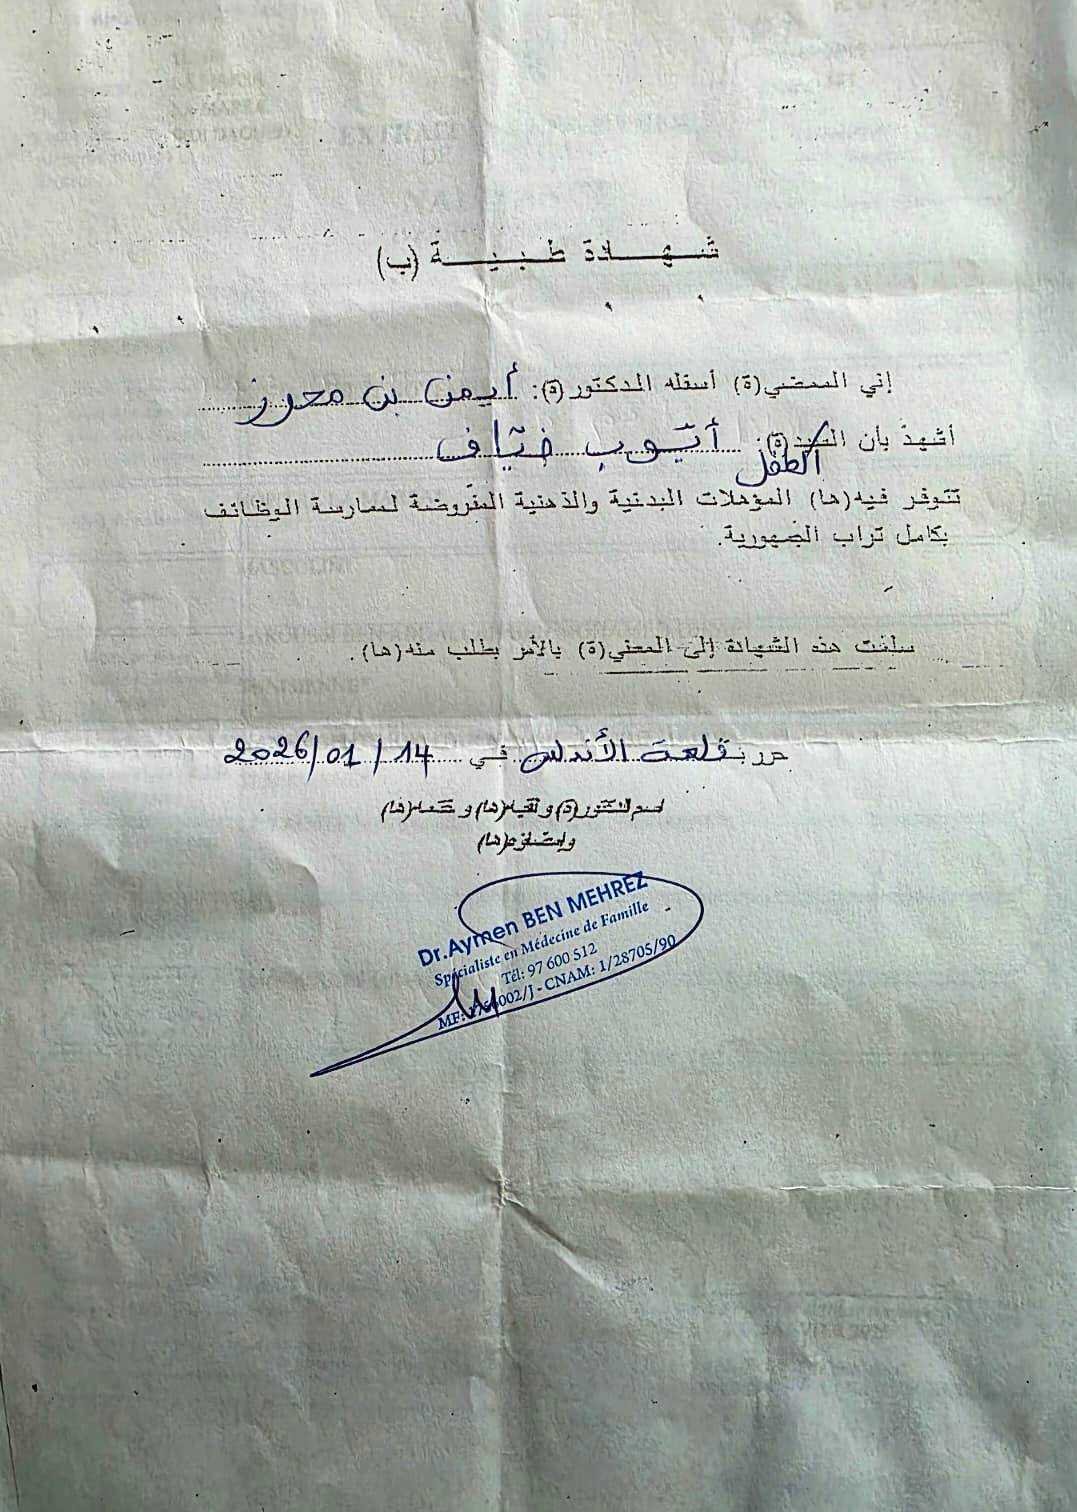 شهادة طبية (ب)
إني الممضي(ة) أسفله الدكتور(ة): أيمن بن محرز
أشهد بأن السيد(ة): أيّوب ضيّاف
الطفل
تتوفر فيه(ها) المؤهلات البدنية والذهنية المفروضة لممارسة الوظائف
بكامل تراب الجمهورية.
سلمت هذه الشهادة إلى المعني(ة) بالأمر بطلب منه(ها).
حرر بقلعة الأندلس في 14/01/2026
اسم الدكتور(ة) ولقبه(ها) وختمه(ها)
وإمضاؤه(ها)
Dr.Aymen BEN MEHREZ
Spécialiste en Médecine de Famille
Tél: 97 600 512
MF: 002/J - CNAM: 1/28705/90